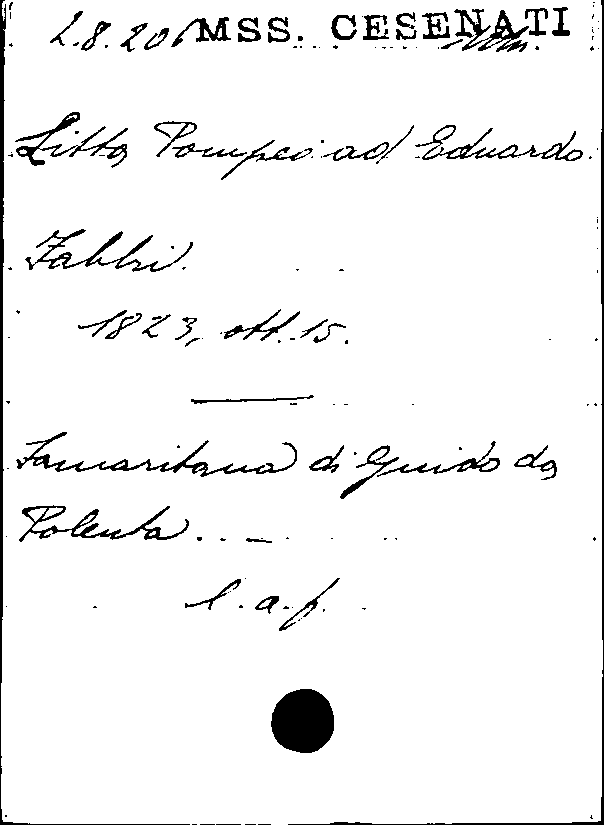 2.8.206 MSS. CESENATI
Litta Pompeo ad Eduardo
Fabbri.
1823, ott. 15.
Samaritana di Guido da
Polenta . . . -
l. a. f.